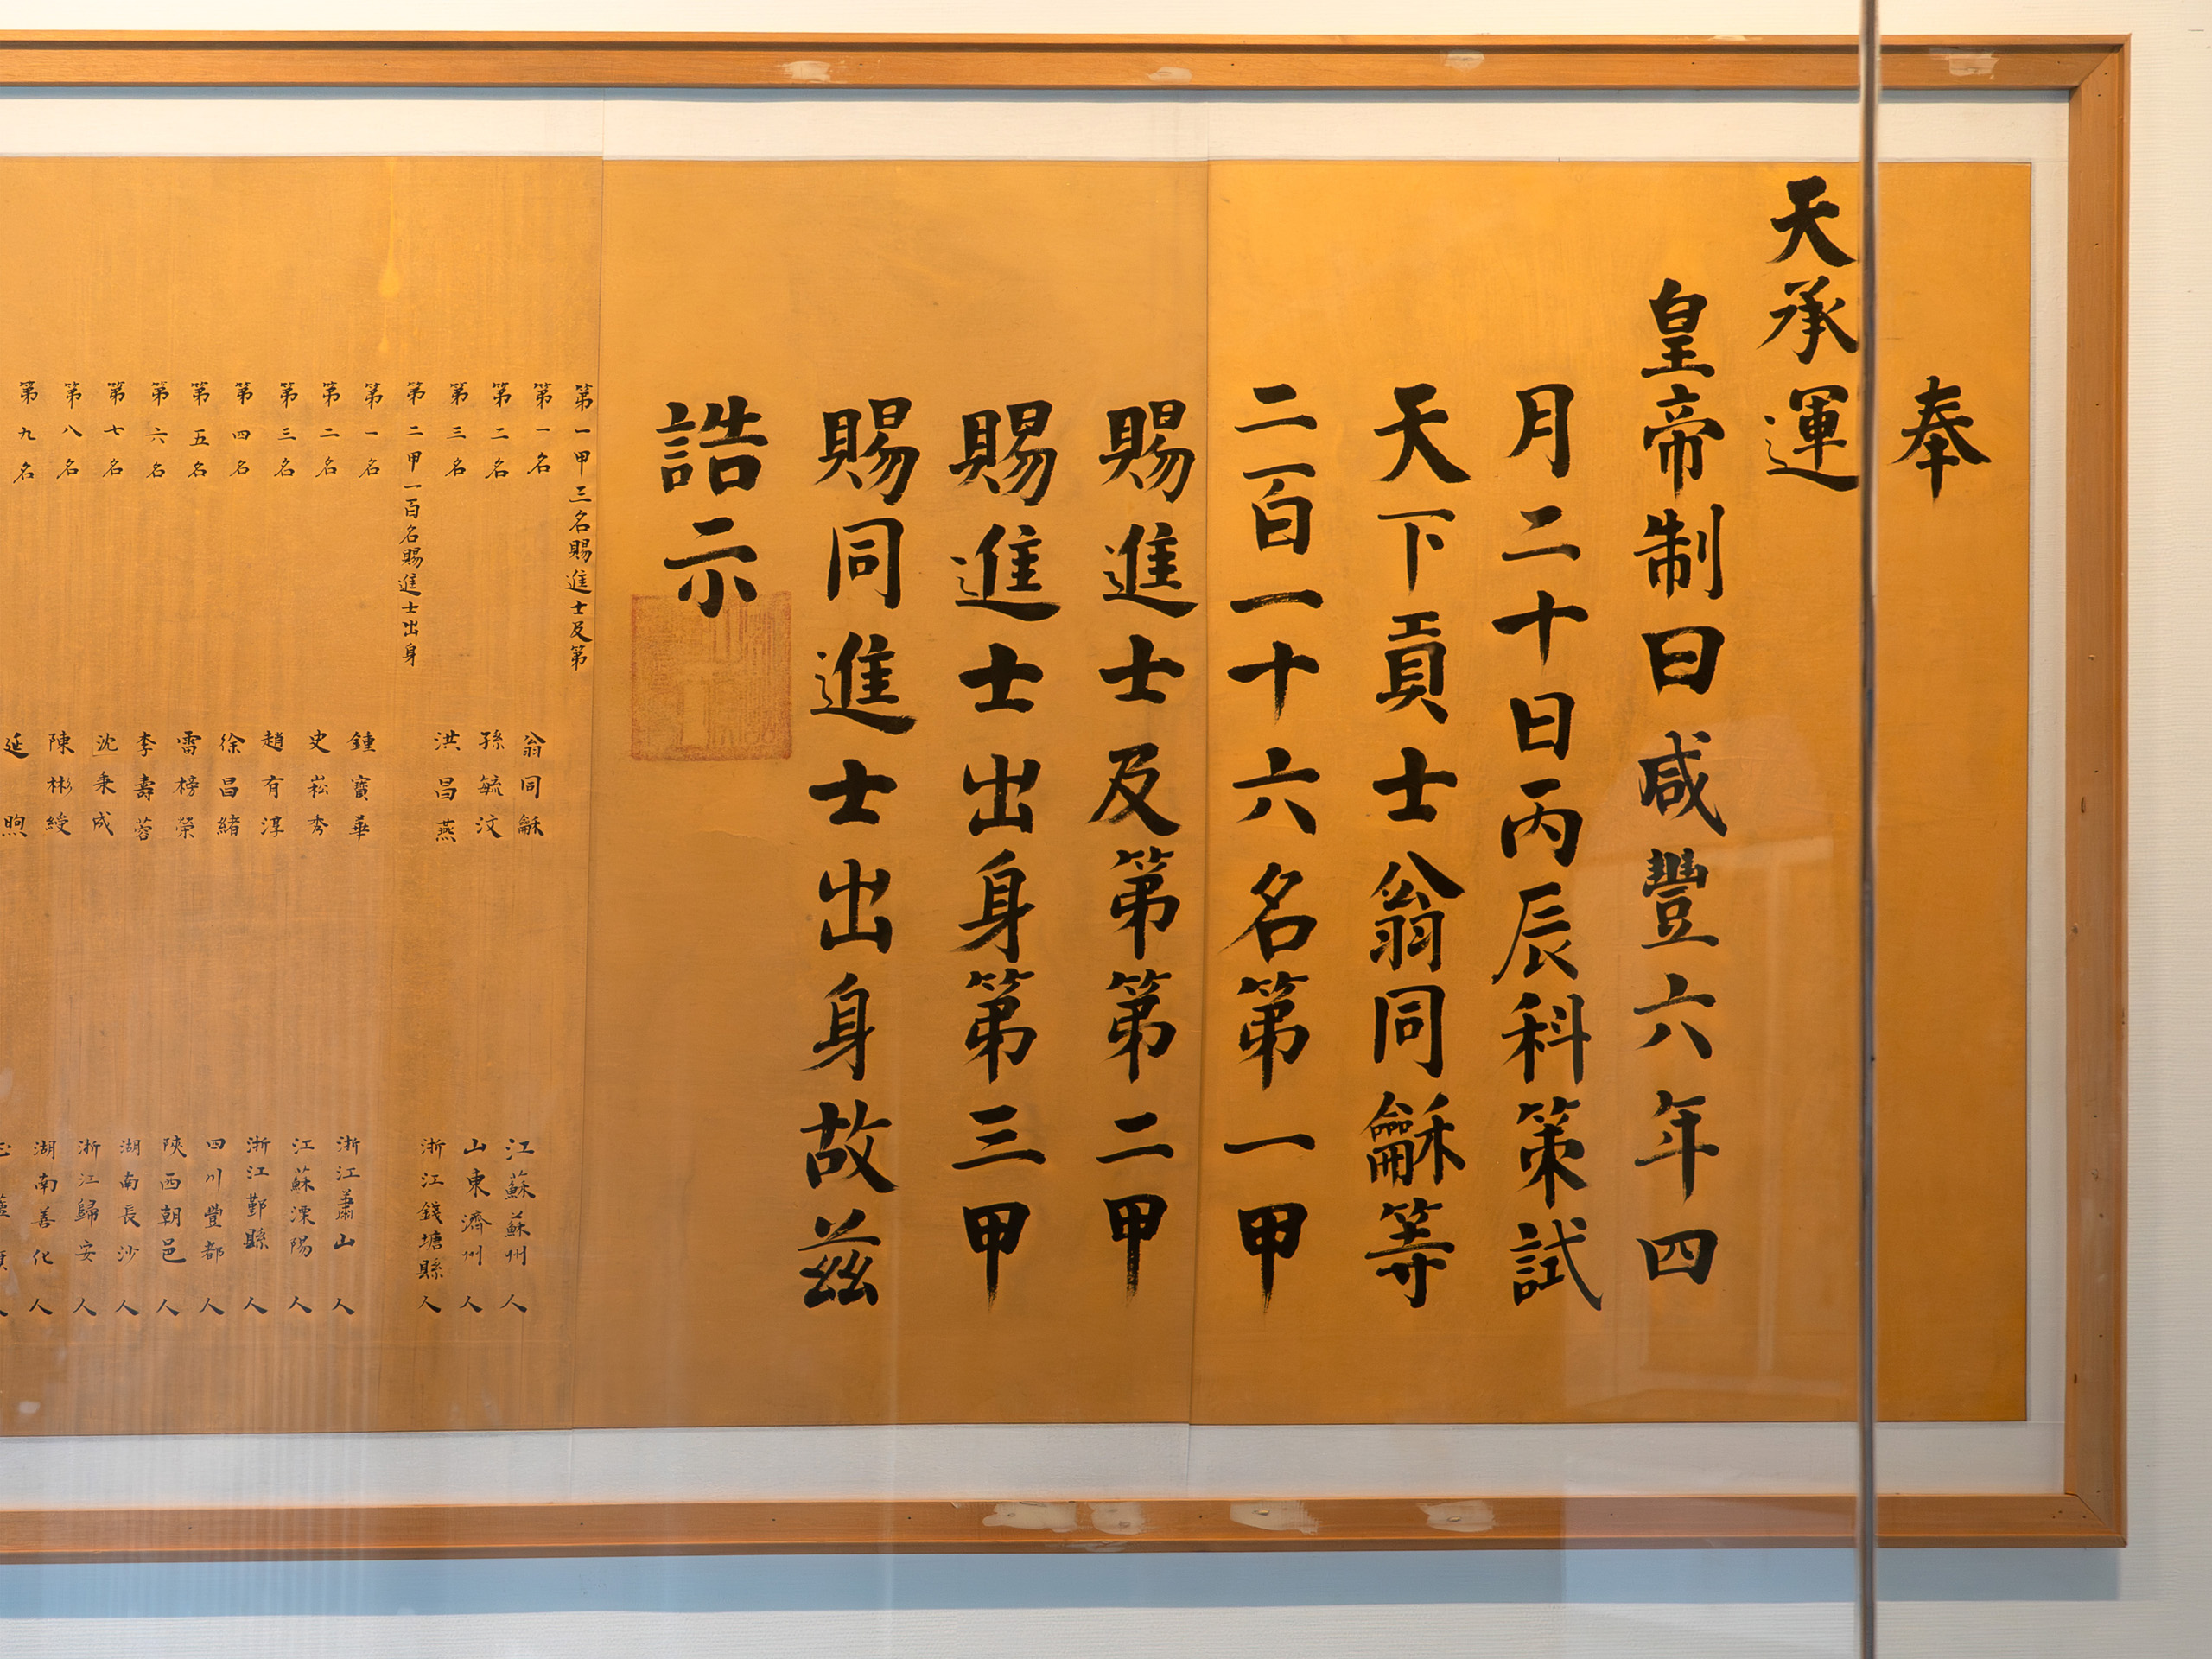 奉
天承運
皇帝制曰咸豐六年四
月二十日丙辰科策試
天下貢士翁同龢等
二百一十六名第一甲
賜進士及第第二甲
賜進士出身第三甲
賜同進士出身故茲
誥示
第一甲三名賜進士及第
第一名 翁同龢 江蘇蘇州人
第二名 孫毓汶 山東濟州人
第三名 洪昌燕 浙江錢塘縣人
第二甲一百名賜進士出身
第一名 鍾寶華 浙江蕭山人
第二名 史崧秀 江蘇溧陽人
第三名 趙有淳 浙江鄞縣人
第四名 徐昌緒 四川豐都人
第五名 雷榜榮 陝西朝邑人
第六名 李壽蓉 湖南長沙人
第七名 沈秉成 浙江歸安人
第八名 陳彬綬 湖南善化人
第九名 延煦 人